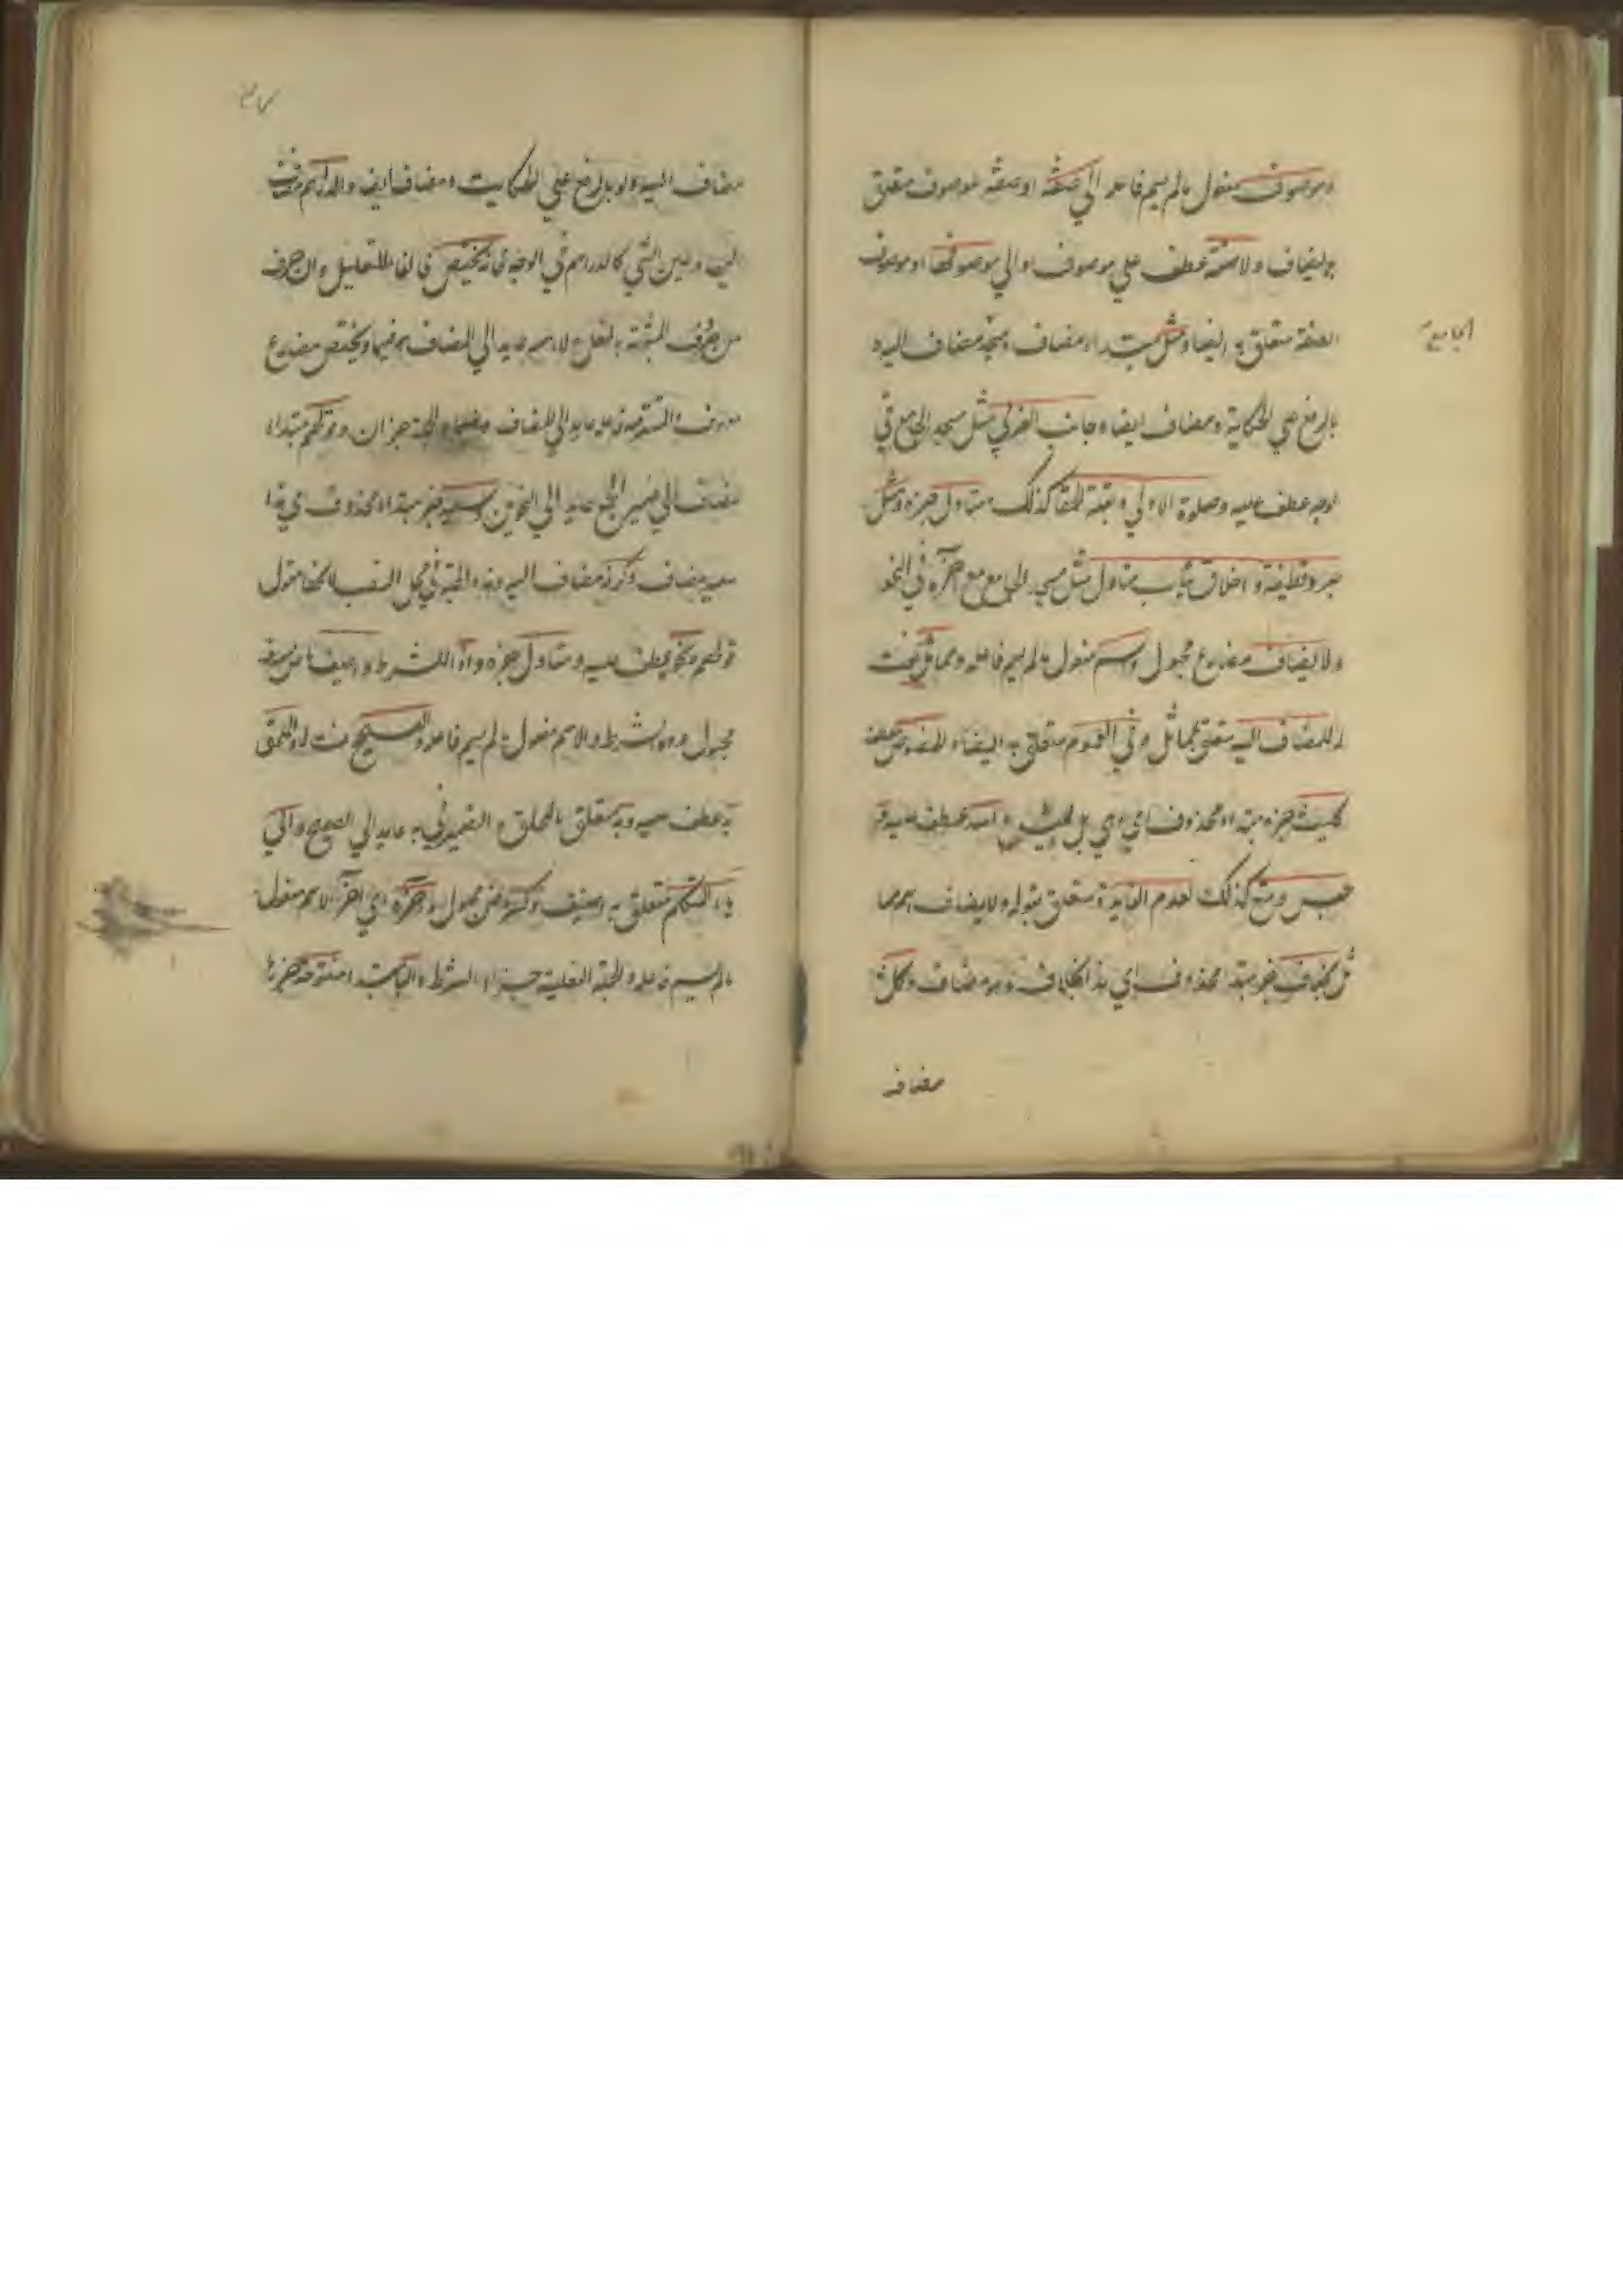 وموصوف مفعول مالم يسم فاعله الى صفته او صفته لموصوف متعلق
بيضاف ولا صفة عطف علي موصوف والي موصوفها او موصوف
الصفة متعلق به ايضا ومثل مبتداء مضاف ومسجد مضاف اليه
الجامع
بالرفع علي الحكاية ومضاف ايضا وجانب الغربي مثل مسجد الجامع في
الوجه عطف عليه وصلوة الاولي وبقلة الحمقا كذلك متاول خبره ومثل
جرد قطيفة واخلاق ثياب متاول مثل مسجد الجامع مع خبره في النحو
ولا يضاف مضارع مجهول واسم مفعول مالم يسم فاعله ومماثل نعت
له للمضاف اليه متعلق بمماثل وفي العموم متعلق به ايضا والخصوص عطف
كليث خبر مبتداء محذوف اي هي مثل ليث واسد عطف عليه و
حبس ومنع كذلك لعدم الفايدة متعلق بقوله ولا يضاف اسم مما
ثل بخلاف خبر مبتدا محذوف اي هذا بخلاف وهو مضاف وكل
مضاف
مضاف اليه وله بالرفع علي الحكايت ومضاف ايض والدراهم مضاف
اليه وعين الشي كالدراهم في الوجه فانه يختص فالفا للتعليل وان حرف
من حروف المشبهة بالفعل والاسم عايد الي المضاف فيهما ويختص مضارع
معروف المستتر فيه فاعله عايد الي المضاف والجملة خبر ان وقولهم مبتداء
مضاف الي ضمير الجمع عايد الي النحويين وسعيد خبر مبتداء محذوف اي هذا
سعيد مضاف وكرز مضاف اليه وهذه الجملة في محل النصب لانها مقول
قولهم ونحوه عطف عليه ومتاول خبره واذا للشرط واضيف ماض
مجهول وهو الشرط والاسم مفعول مالم يسم فاعله والصحيح نعت له والملحق
به عطف عليه وبه متعلق بالملحق والضمير في به عايد الي الصحيح والي
ياء المتكلم متعلق به اضيف وكسر ماض مجهول واخره اي اخر الاسم مفعول
مالم يسم فاعله والجملة الفعلية جزاء الشرط والياء مبتداء مفتوحة خبرها